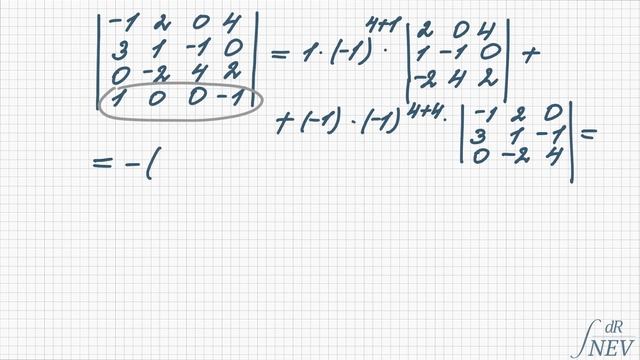 | -1 2 0 4 |
| 3 1 -1 0 |
| 0 -2 4 2 |
| 1 0 0 -1 | = 1 · (-1)^{4+1} · | 2 0 4 |
| 1 -1 0 |
| -2 4 2 | +
+ (-1) · (-1)^{4+4} · | -1 2 0 |
| 3 1 -1 |
| 0 -2 4 | =
= - (
∫ dR
NEV